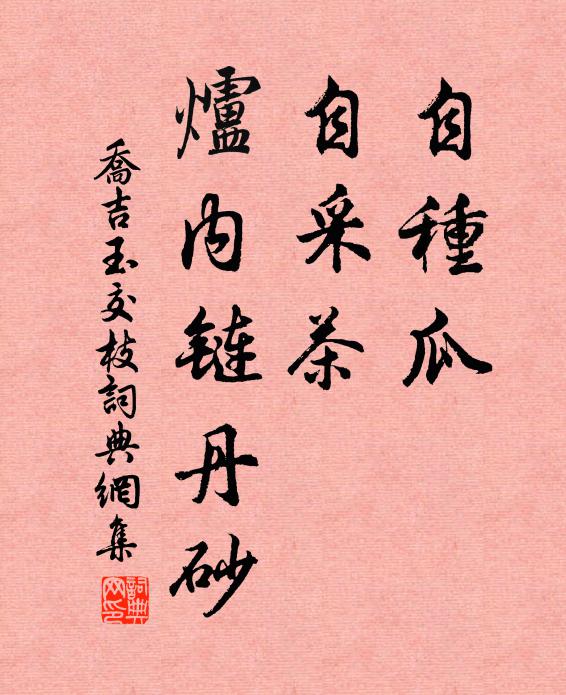 自種瓜
自采茶
爐内鏈丹砂
喬吉玉交枝詞典網集
詞典网印